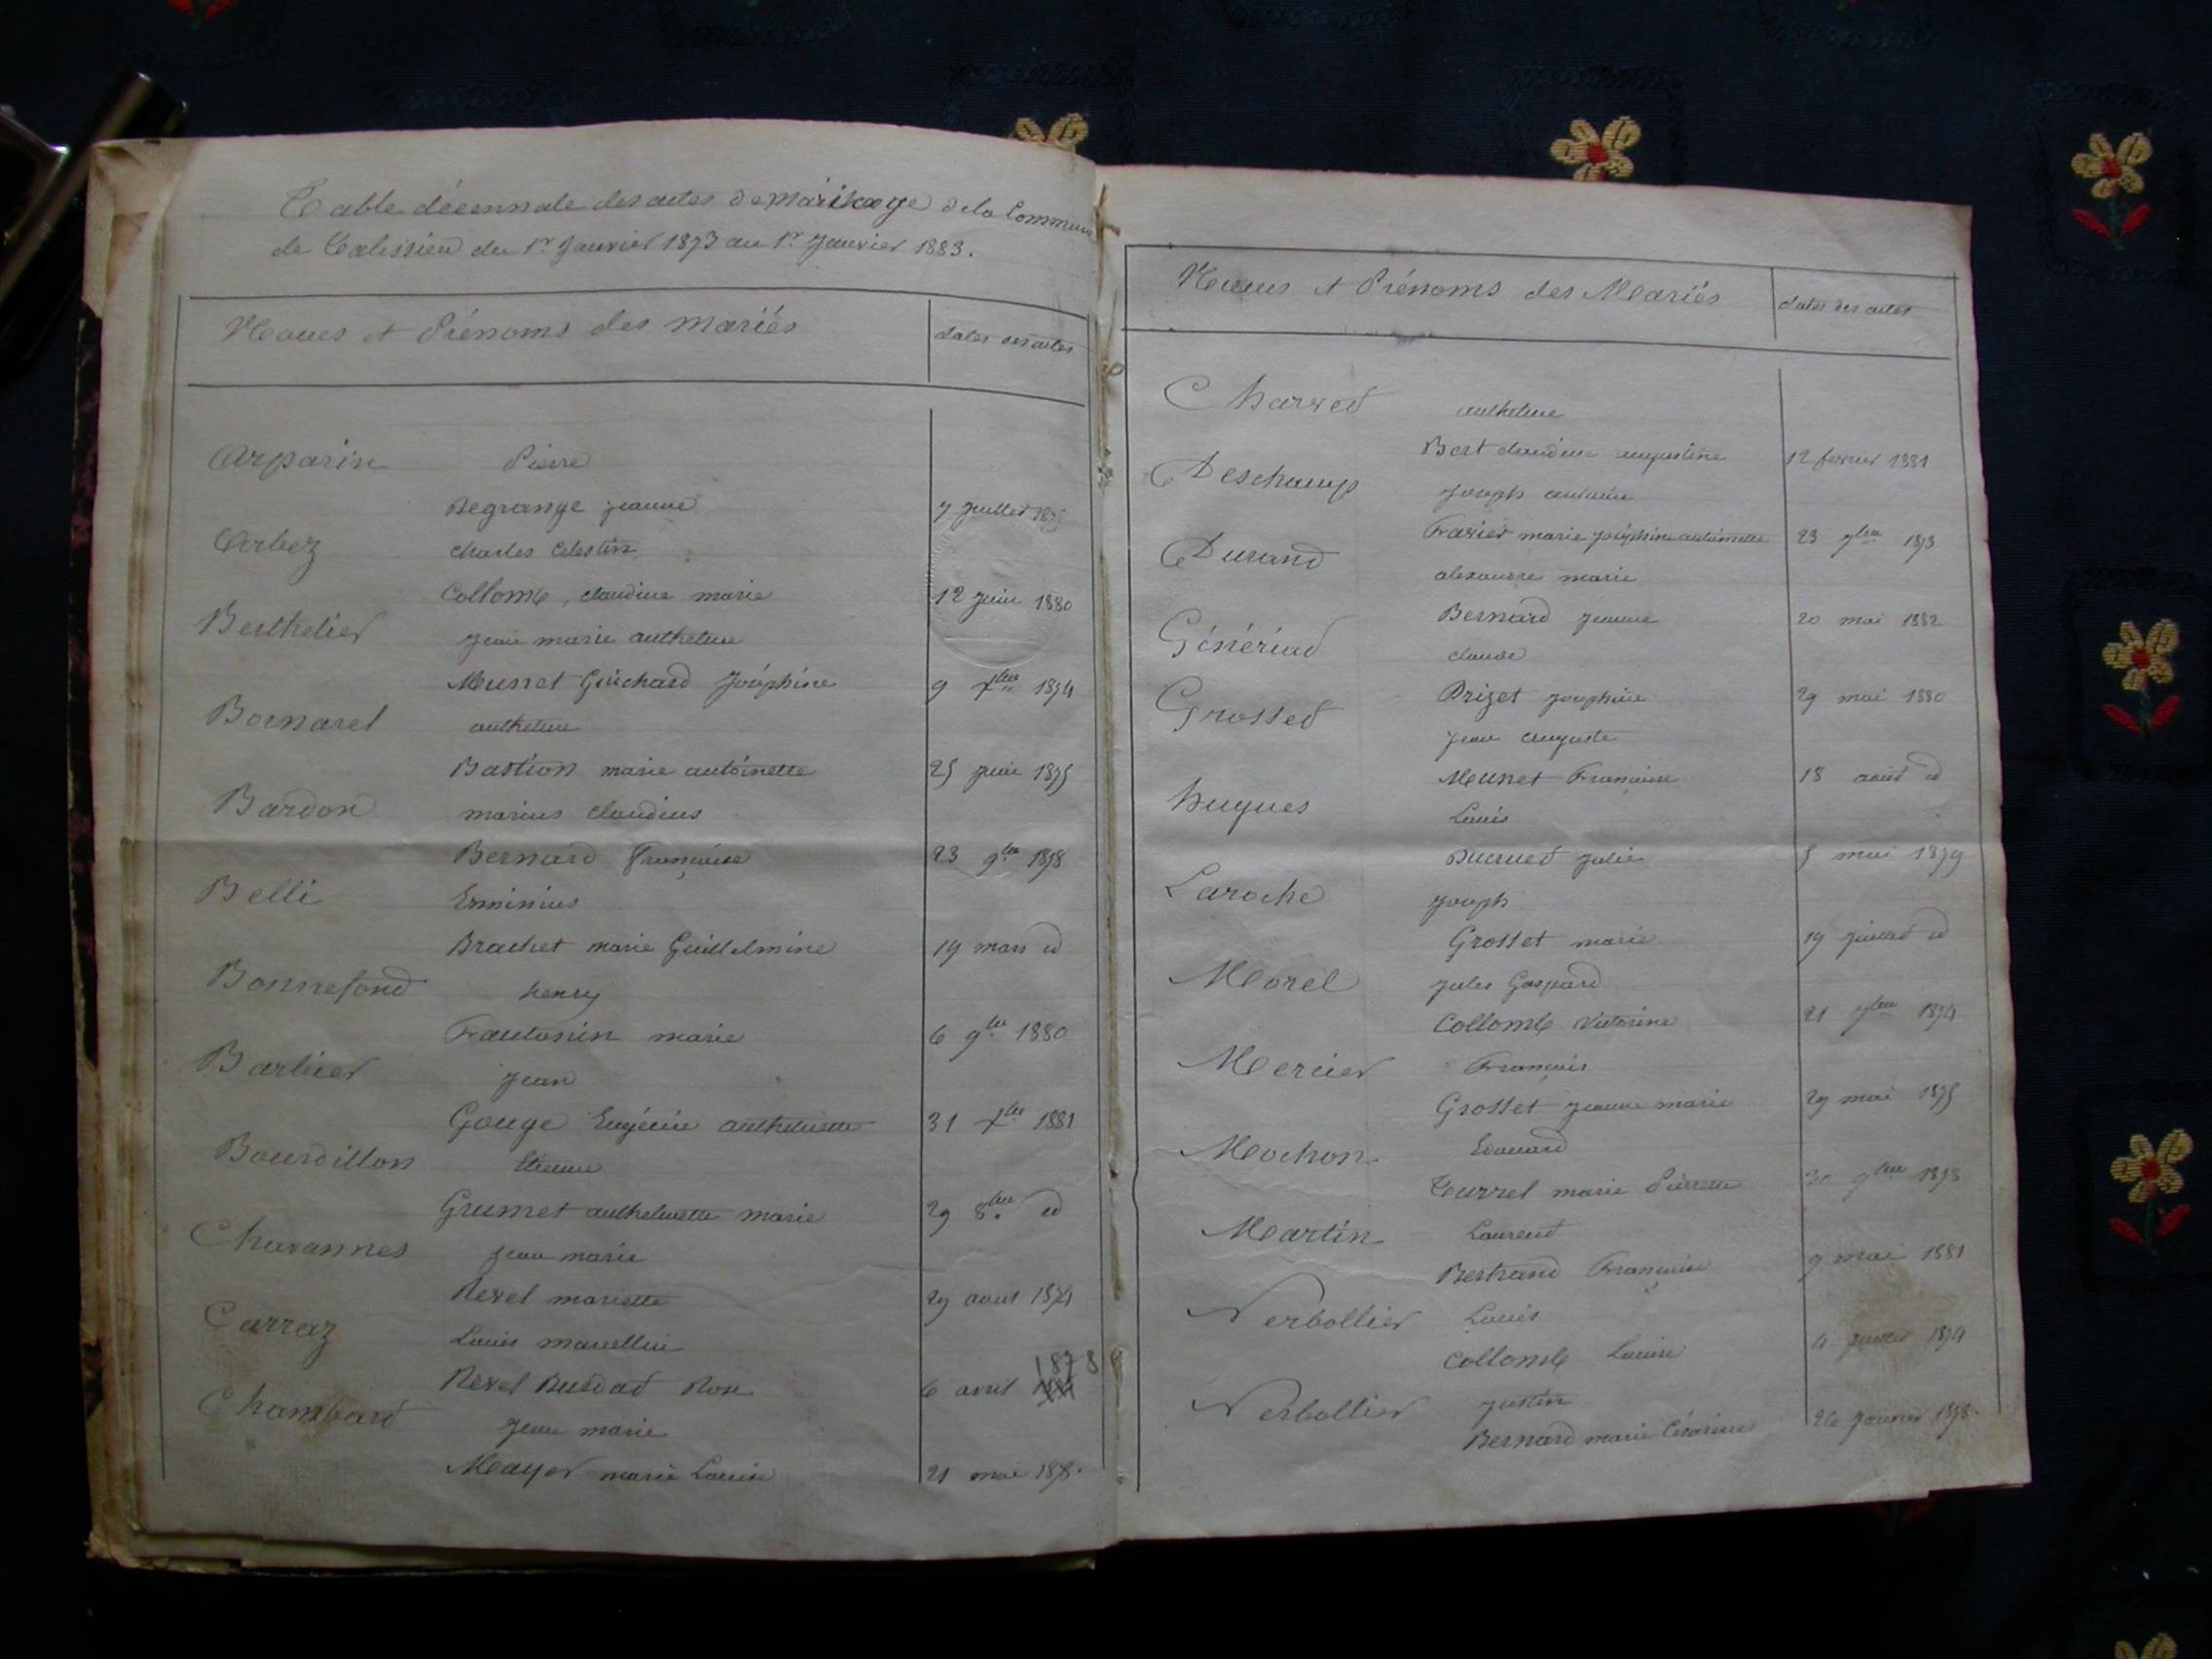 Table décennale des actes de mariage de la Commune
de Talissieu du 1er Janvier 1873 au 1er Janvier 1883.
Noms et Prénoms des mariés dates des actes
Arparin Pierre
Degrange jeanne 7 juillet 1875
Arbez Charles Celestin
Collomb, claudine marie 12 juin 1880
Berthelier jean marie anthelme
Musset Guichard Joséphine 9 Xbre 1874
Bornarel anthelme
Bastion marie antoinette 25 juin 1875
Bardon marius claudius
Bernard Françoise 23 9bre 1878
Belli Erminius
Brachet marie Guillelmine 19 mars id
Bonnefond henry
marie 6 9bre 1880
Barbier jean
Gouge Eugénie anthelmette 31 Xbre 1881
Bourdillon Etienne
Grumet anthelmette marie 29 8bre id
Chavannes jean marie
Revel mariette 29 1874
Carraz Louis marcellin
Revel Burdat Rose 6 avril 1878
Chambard jean marie
Mayer marie Louise 21 mai 1878.
Noms et Prénoms des Mariés dates des actes
Charvet anthelme
Bert claudine augustine 12 février 1881
Deschamp joseph antoine
Favier marie joséphine antoinette 23 1873
Durand alexandre marie
Bernard jeanne 20 mai 1882
Génériat claude
Brizet joséphine 29 mai 1880
Grosset jean auguste
Meunet Françoise 18 août id
hugues Louis
Ducruet julie 5 mai 1879
Laroche joseph
Grosset marie 19 juillet id
Morel jules Gaspard
Collomb Victorine 21 1874
Mercier François
Grosset jeanne marie 29 mai 1875
Mochon Edouard
Tourrel marie Pierrette 30 9bre 1878
Martin Laurent
Bertrand Françoise 9 mai 1881
Verbollier Louis
Collomb Louise 4 juillet 1874
Verbollier justin
Bernard marie Césarine 26 janvier 1878.